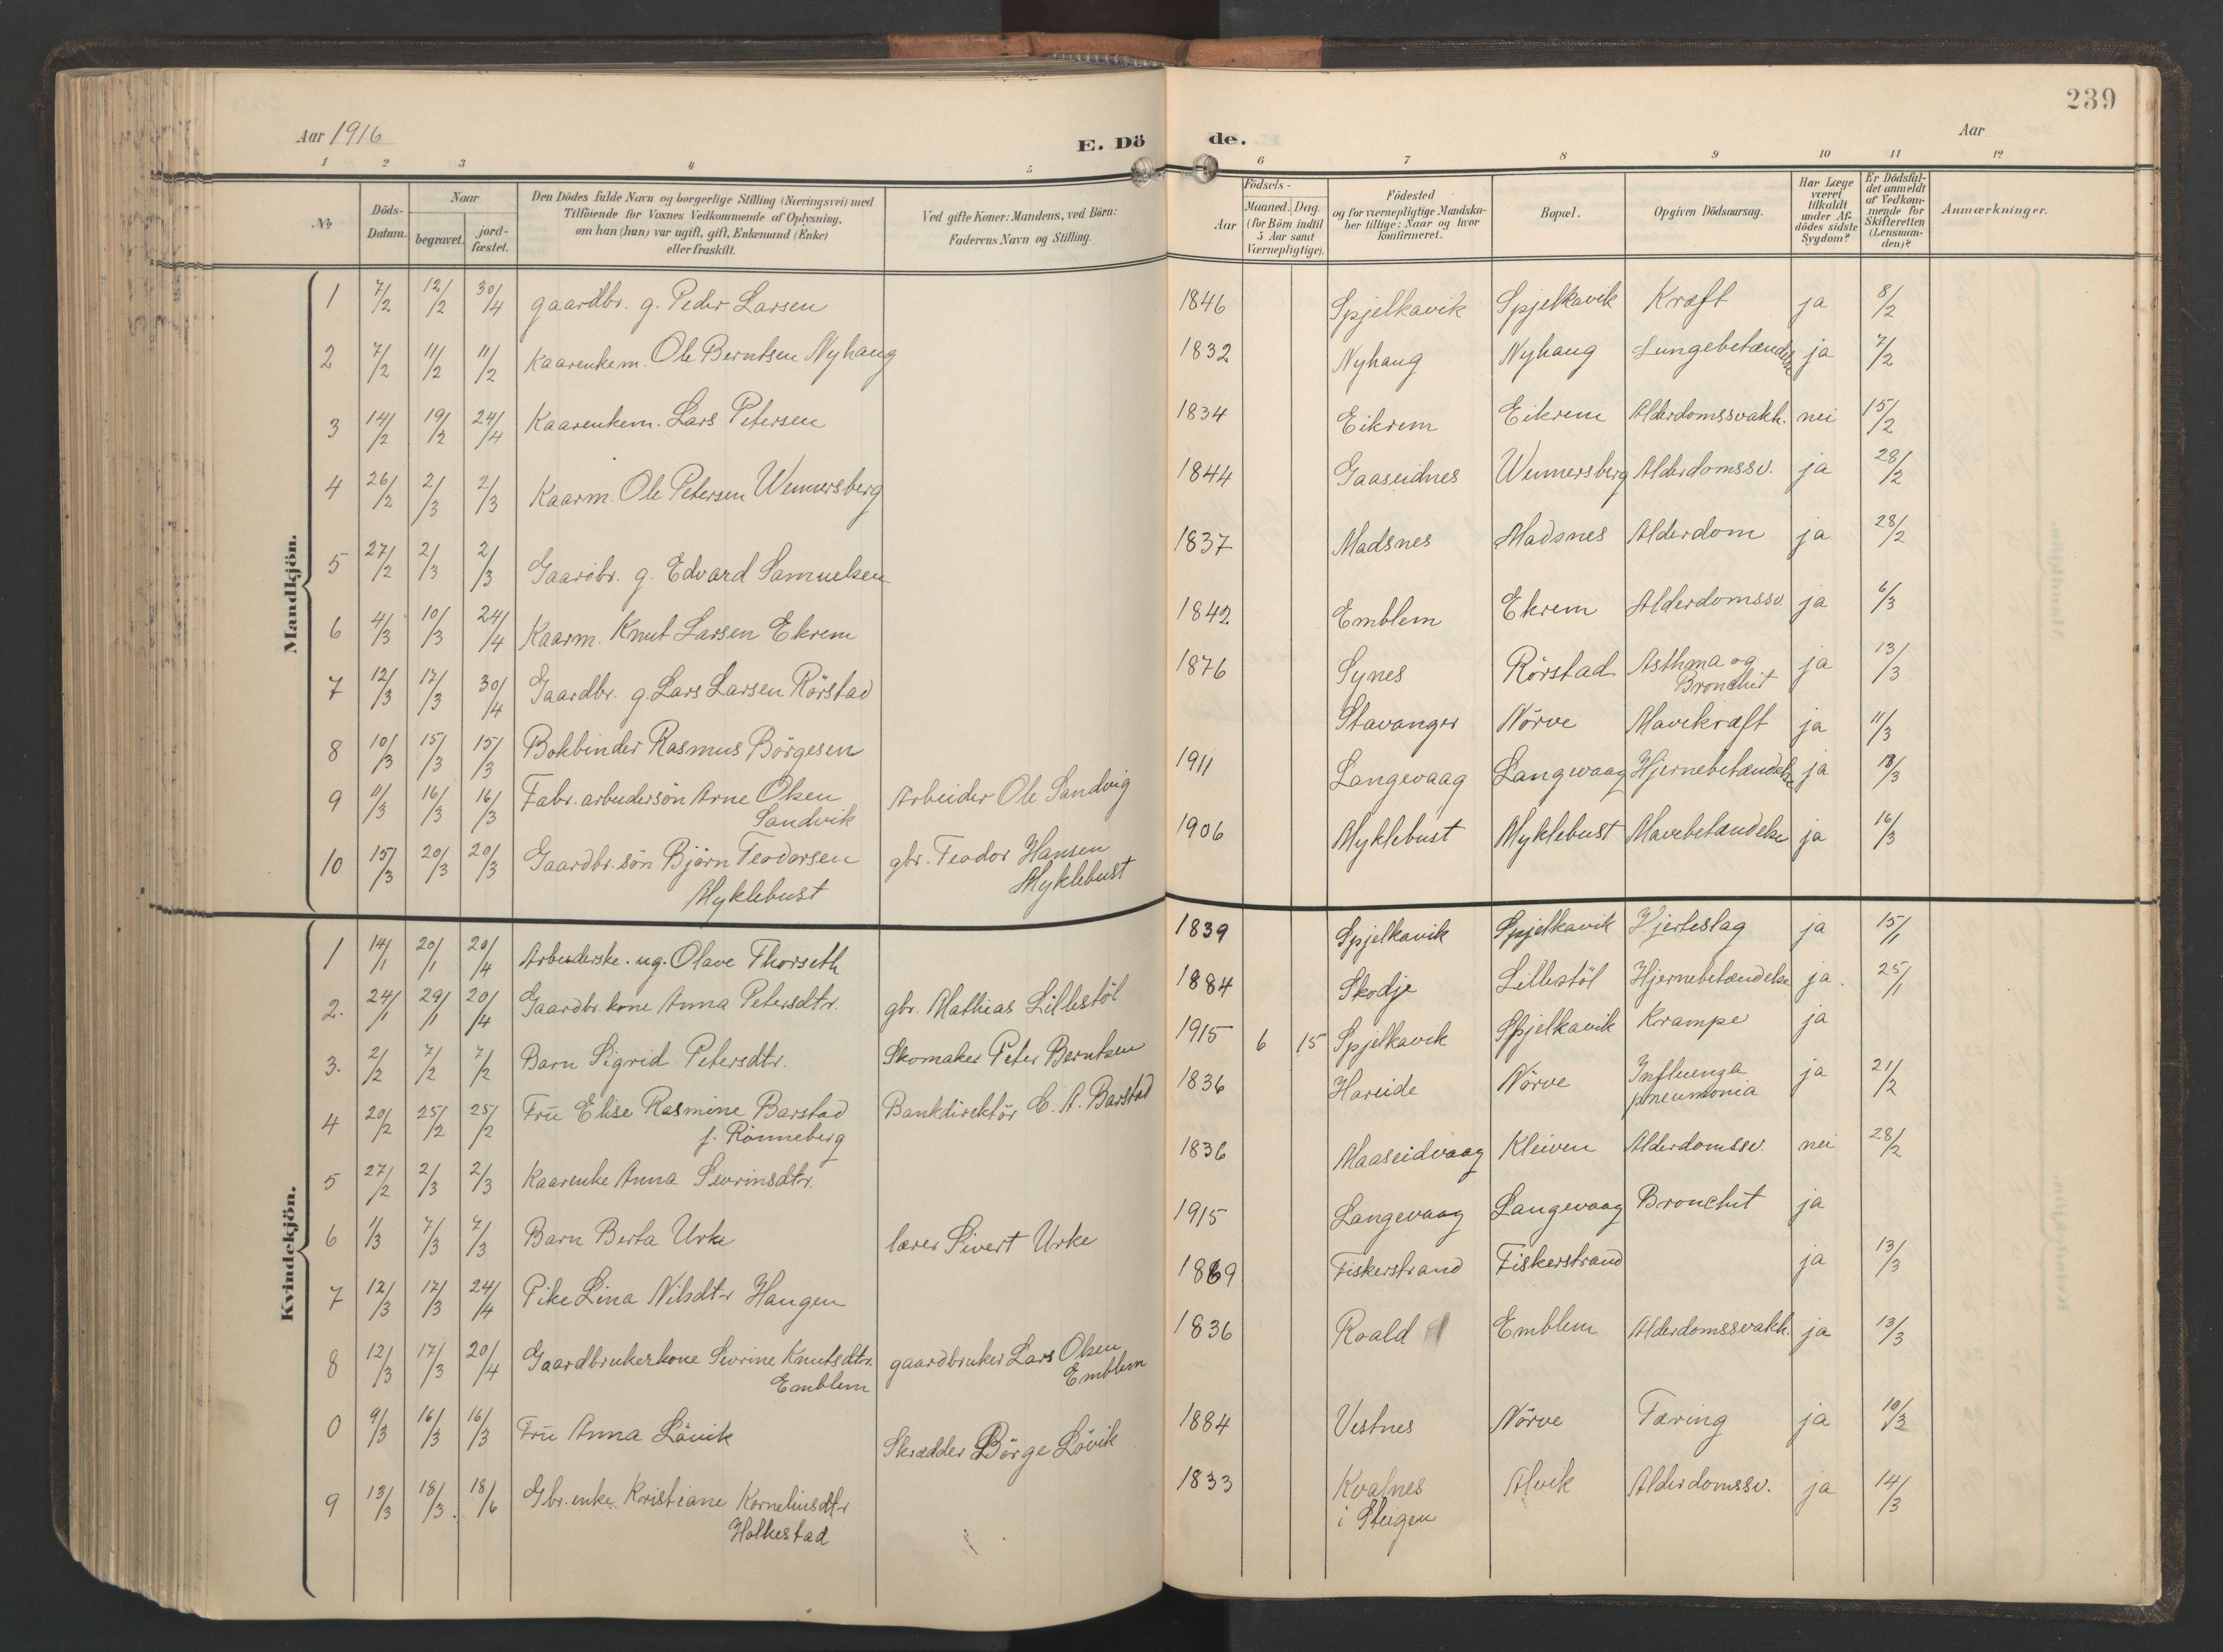 239
Aar 1916
E. Dö de.
Aar
1 2 3 4 5 6 7 8 9 10 11 12
№
Döds-Datum.
Naar
begravet.
jord-fæstet.
Den Dödes fulde Navn og borgerlige Stilling (Næringsvei) med
Tilföiende for Voxnes Vedkommende af Oplysning,
om han (hun) var ugift, gift, Enkemand (Enke)
eller fraskilt.
Ved gifte Koner: Mandens, ved Börn:
Faderens Navn og Stilling.
Födsels-
Aar
Maaned. Dag.
(for Börn indtil
5 Aar samt
Værnepligtige).
Födested
og for værnepligtige Mandska-
ber tillige: Naar og hvor
konfirmeret.
Bopæl.
Opgiven Dödsaarsag.
Har Læge
været
tilkaldt
under Af-
dödes sidste
Sygdom?
Er Dödsfal-
det anmeldt
af Vedkom-
mende for
Skifteretten
(Lensman-
den)?
Anmærkninger.
Mandkjön.
1 7/2 12/2 30/4 gaardbr. g. Peder Larsen 1846 Spjelkavik Spjelkavik Kræft ja 8/2
2 7/2 11/2 11/2 Kaarenkem. Ole Berntsen Nyhaug 1832 Nyhaug Nyhaug Lungebetændelse ja 7/2
3 14/2 19/2 24/4 Kaarenkem. Lars Petersen 1834 Eikrem Eikrem Alderdomssvakh. nei 15/2
4 26/2 2/3 2/3 Kaarm. Ole Petersen Wennersberg 1844 Gaaseidnes Wennersberg Alderdomssv. ja 28/2
5 27/2 2/3 2/3 Gaardbr. g. Edvard Samuelsen 1837 Madsnes Madsnes Alderdom ja 28/2
6 4/3 10/3 24/4 Kaarm. Knut Larsen Ekrem 1842 Emblem Ekrem Alderdomssv. ja 6/3
7 12/3 17/3 30/4 Gaardbr. g. Lars Larsen Rörstad 1876 Synes Rörstad Asthma og
Bronchit ja 13/3
8 10/3 15/3 15/3 Bokbinder Rasmus Börgesen Stavanger Nörve Mavekræft ja 11/3
9 11/3 16/3 16/3 Fabr. arbeidersön Arne Olsen
Sandvik Arbeider Ole Sandvig 1911 Langevaag Langevaag Hjernebetændelse ja 18/3
10 15/3 20/3 20/3 Gaardbr. sön Björn Teodorsen
Myklebust gbr. Teodor Hansen
Myklebust 1906 Myklebust Myklebust Mavebetændelse ja 16/3
Kvindekjön.
1 14/1 20/1 20/4 Arbeiderske. ug. Olave Thorseth 1839 Spjelkavik Spjelkavik Hjerteslag ja 15/1
2. 24/1 29/1 20/4 Gaardbr. kone Anna Petersdtr. gbr. Mathias Lillestöl 1884 Skodje Lillestöl Hjernebetændelse ja. 25/1
3. 2/2 7/2 7/2 Barn Sigrid Petersdtr. Skomaker Peter Berntsen 1915 6 15 Spjelkavik Spjelkavik Krampe ja
4 20/2 25/2 25/2 Fru Elise Rasmine Barstad
f. Rönneberg Bankdirektör C. A. Barstad 1836 Hareide Nörve Influenza
pneumonia ja 21/2
5 27/2 2/3 2/3 Kaarenke Anna Sevrinsdtr. 1836 Maaseidvaag Kleiven Alderdomssv. nei 28/2
6 1/3 7/3 7/3 Barn Berta Urke lærer Sivert Urke 1915 Langevaag Langevaag Bronchit ja
7 12/3 17/3 24/4 Pike Lina Nilsdtr Haugen 1869 Fiskerstrand Fiskerstrand ja 13/3
8 12/3 17/3 20/4 Gaardbrukerkone Sevrine Knutsdtr.
Emblem gaardbruker Lars Olsen
Emblem 1836 Roald Emblem Alderdomssvakh. ja 13/3
0 9/3 16/3 16/3 Fru Anna Lövik Skrædder Börge Lövik 1884 Vestnes Nörve Tæring ja 10/3
9 13/3 18/3. 18/6 Gbr. enke Kristiane Korneliusdtr
Holkestad 1833 Kvalnes
i Steigen Alvik Alderdomssv. ja 14/3